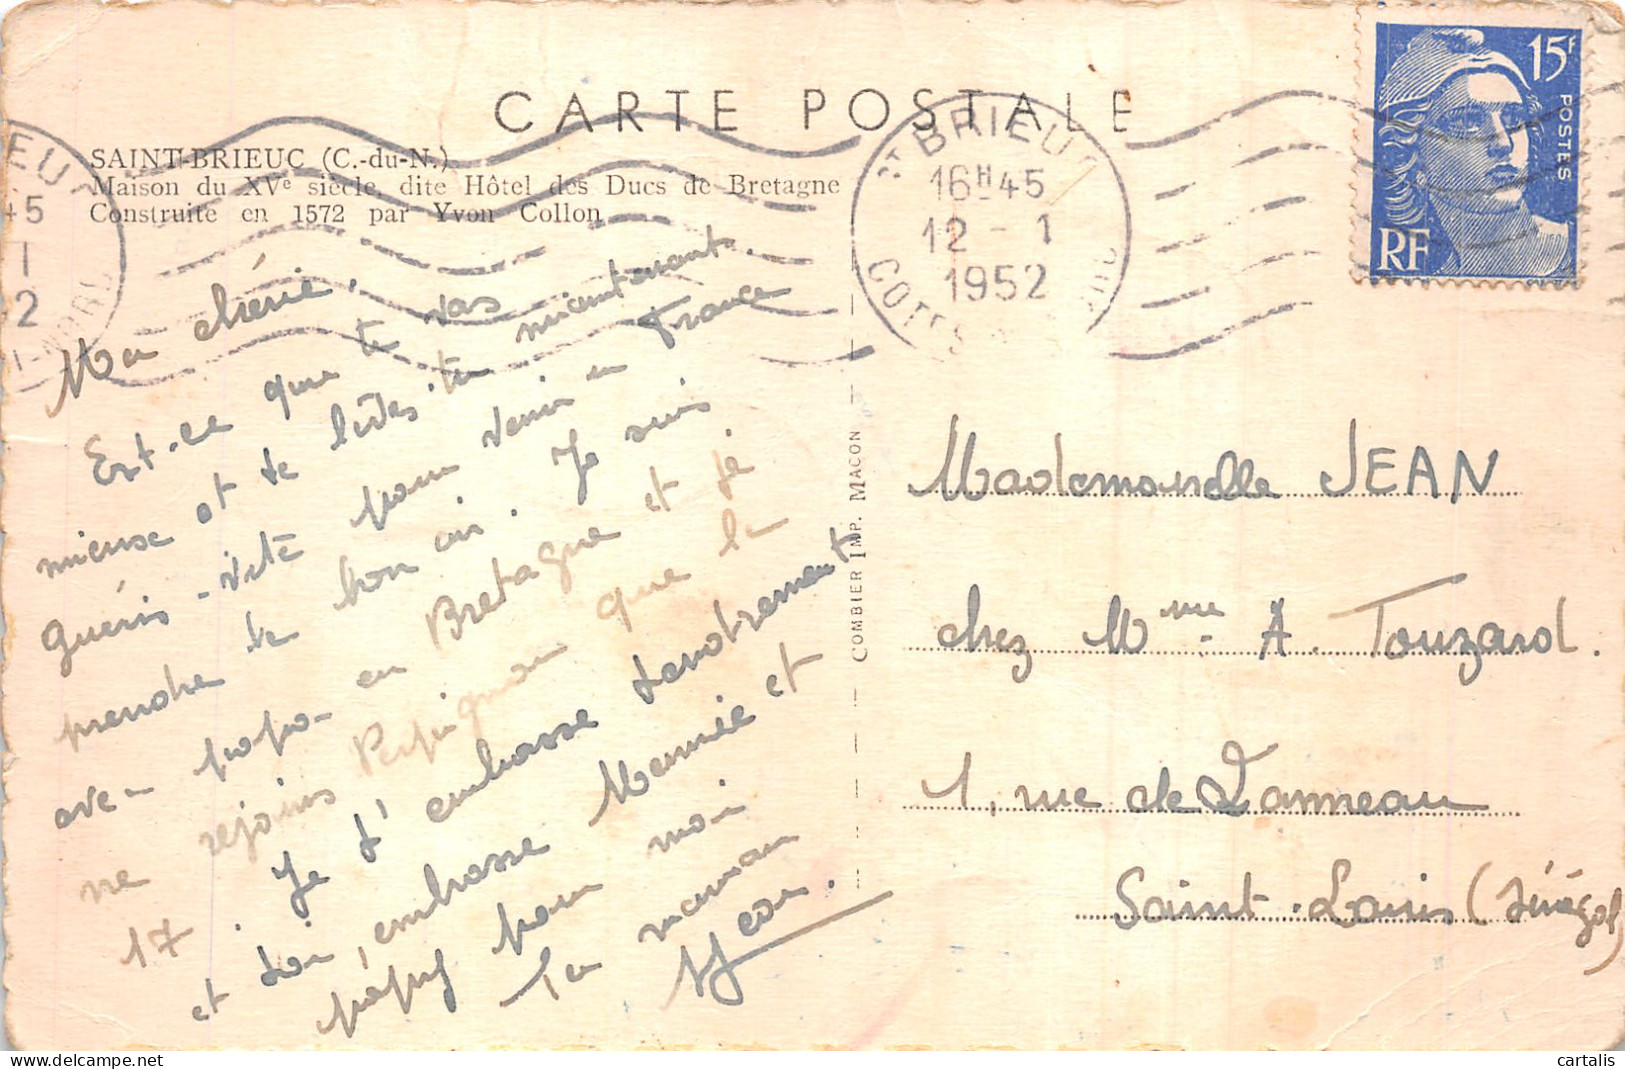 CARTE POSTALE
SAINT-BRIEUC (C.-du-N.)
Maison du XVe siècle, dite Hôtel des Ducs de Bretagne
Construite en 1572 par Yvon Collon
ST BRIEUC
16H45
12 - 1
1952
COTES DU NORD
15F
POSTES
RF
EUC
45
1
2
Ma chérie,
Est-ce que tu vas
mieuse et te lèves-tu maintenant.
Guéris-vite pour venir en France
prendre le bon air. Je suis
avec papa en Bretagne et je
ne rejoins Perpignan que le
17. Je t'embrasse tendrement
et toi embrasse Mamie et
pápy pour moi
Ta maman
Jean.
COMBIER IMP. MACON
Mademoiselle JEAN
chez Mme A. Touzard.
1, rue de Lanneau
Saint-Louis (Sénégal)
cartalis